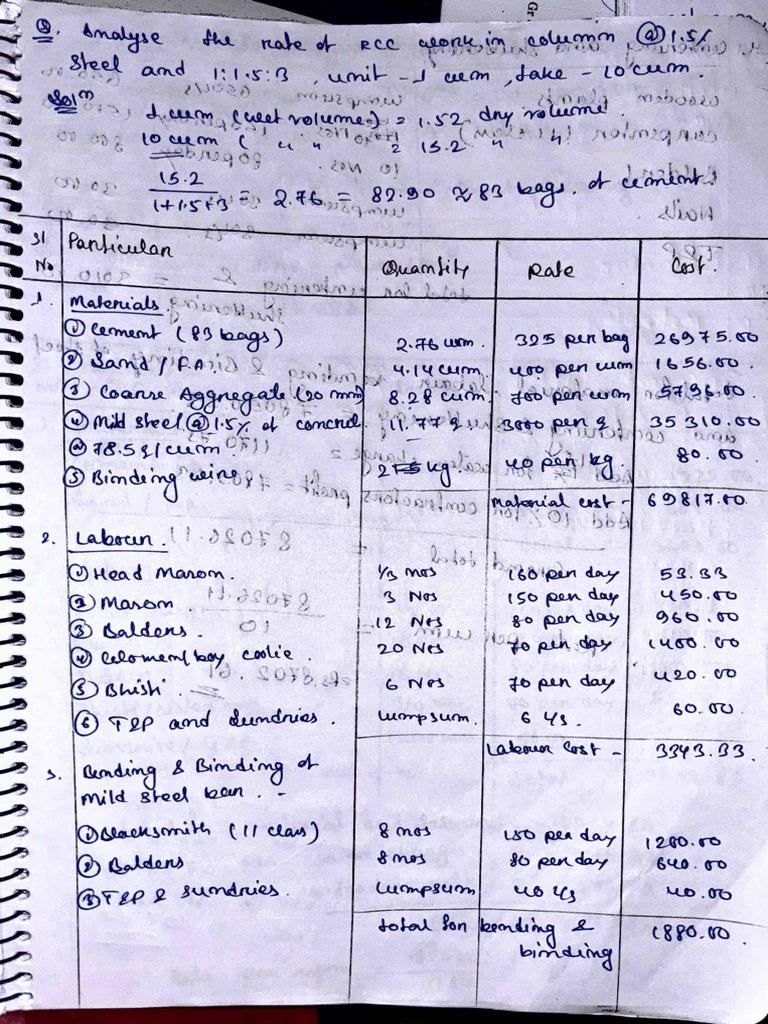 Q. Analyse the rate of RCC work in column @ 1.5%
steel and 1:1.5:3, unit - 1 cum, take - 10 cum.
Solⁿ
1 cum (wet volume) = 1.52 dry volume.
10 cum ( " " " = 15.2 " "
15.2 / 1+1.5+3 = 2.76 = 82.90 ≈ 83 bags of cement.
Sl No Particular Quantity Rate Cost.
1. Materials.
① Cement (83 bags) 2.76 cum. 325 per bag 26975.00
② Sand / F.A. 4.14 cum. 400 per cum 1656.00
③ Coarse Aggregate (20 mm) 8.28 cum. 700 per cum 5796.00
④ Mild steel @ 1.5% of concrete 11.77 q 3000 per q. 35310.00
@ 78.5 q/cum.
⑤ Binding wire 2 kg 40 per kg. 80.00
Material cost - 69817.00
2. Labour.
① Head Mason. 1/3 nos 160 per day 53.33
② Mason. 3 Nos 150 per day 450.00
③ Baldens. 12 Nos 80 per day 960.00
④ Colomen/boy coolie. 20 Nos 70 per day 1400.00
⑤ Bhisti. 6 Nos 70 per day 420.00
⑥ T&P and Sundries. Lumpsum. 60.00
Labour Cost - 3343.33.
3. Bending & Binding of
Mild steel bar. -
① Blacksmith (II class) 8 nos 150 per day 1200.00
② Baldens 8 nos 80 per day 640.00
③ T&P & Sundries. Lumpsum 40.00
total for bending & 1880.00
binding